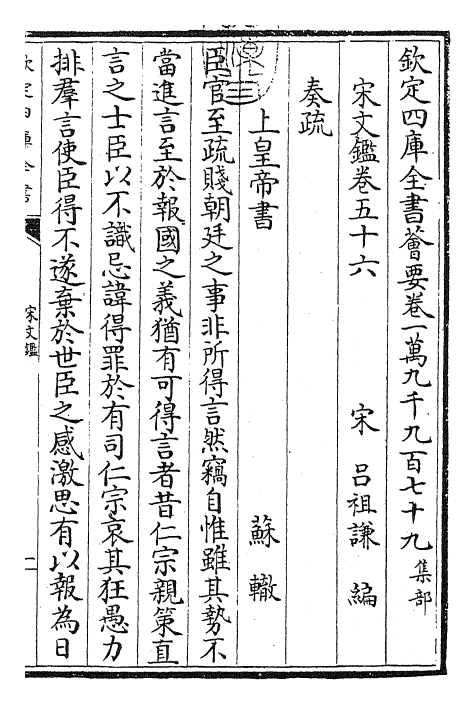 欽定四庫全書薈要卷一萬九千九百七十九 集部
宋文鑑卷五十六
宋 呂祖謙 編
奏疏
上皇帝書 蘇轍
臣官至疏賤朝廷之事非所得言然竊自惟雖其勢不
當進言至於報國之義猶有可得言者昔仁宗親策直
言之士臣以不識忌諱得罪於有司仁宗哀其狂愚力
排羣言使臣得不遂棄於世臣之感激思有以報為日
欽定四庫全書
宋文鑑